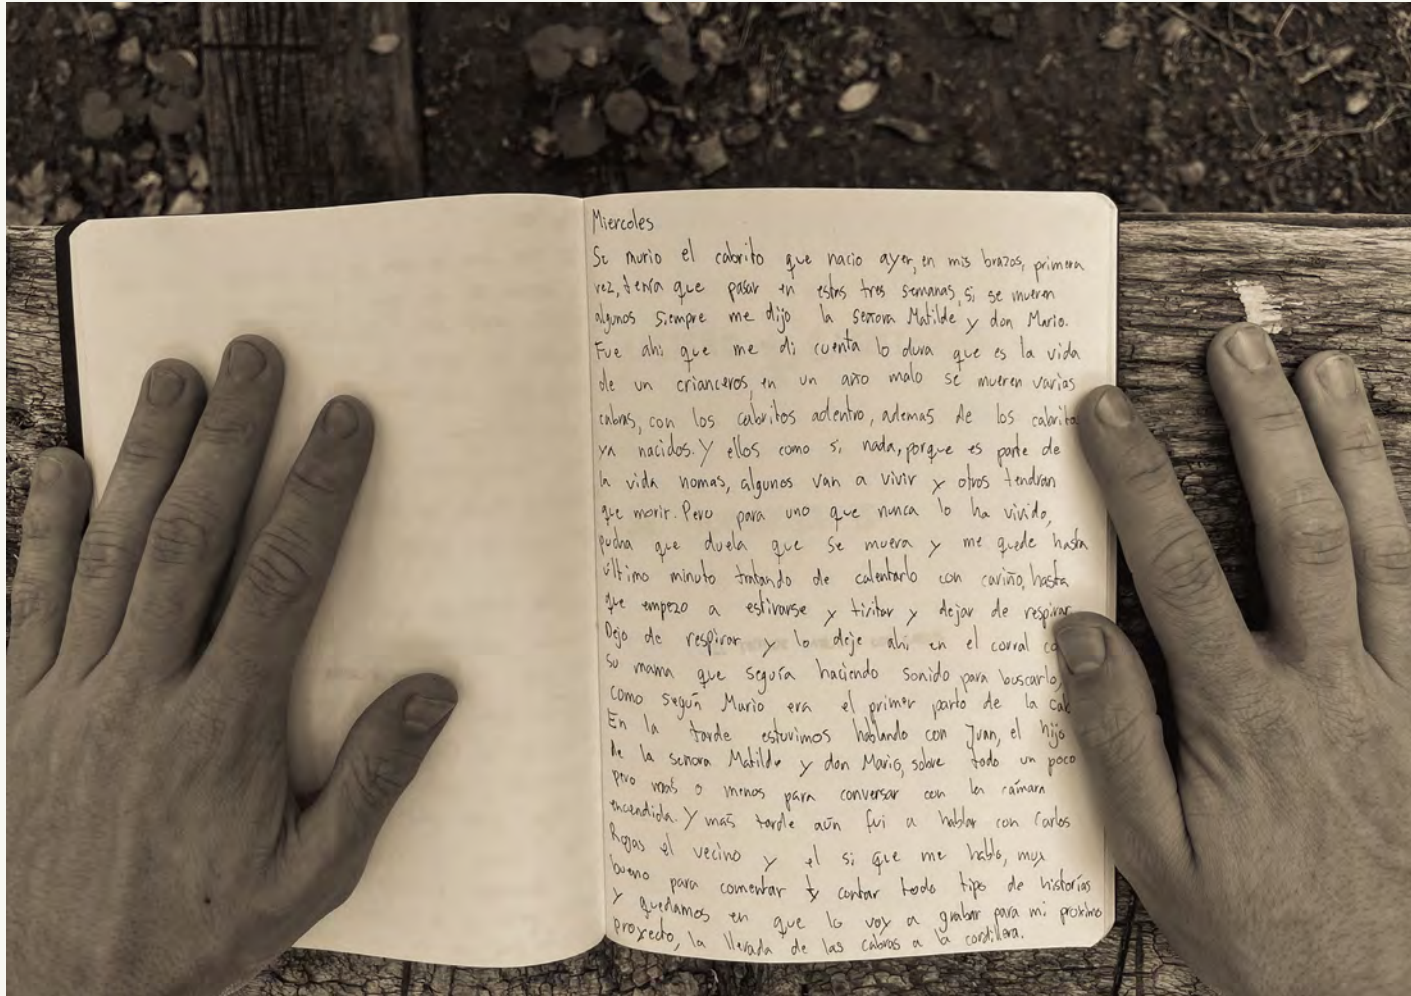 Miercoles
Se murio el cabrito que nacio ayer, en mis brazos, primera
vez, tenía que pasar en estas tres semanas, si se mueren
algunos siempre me dijo la señora Matilde y don Mario.
Fue ahi que me di cuenta lo dura que es la vida
de un crianceros, en un año malo se mueren varias
cabras, con los cabritos adentro, ademas de los cabrito
ya nacidos. Y ellos como si nada, porque es parte de
la vida nomas, algunos van a vivir y otros tendran
que morir. Pero para uno que nunca lo ha vivido,
pucha que duela que se muera y me quede hasta
último minuto tratando de calentarlo con cariño, hasta
que empezo a estirarse y tiritar y dejar de respirar
Dejo de respirar y lo deje ahi en el corral co
su mama que seguía haciendo sonido para buscarlo,
como según Mario era el primer parto de la cab
En la tarde estuvimos hablando con Juan, el hijo
de la señora Matilde y don Mario, sobre todo un poco
pero mas o menos para conversar con la cámara
encendida. Y mas tarde aún fui a hablar con Carlos
Rojas el vecino y el si que me hablo, muy
bueno para comentar y contar todo tipo de historias
y quedamos en que lo voy a grabar para mi proximo
proyecto, la llevada de las cabras a la cordillera.